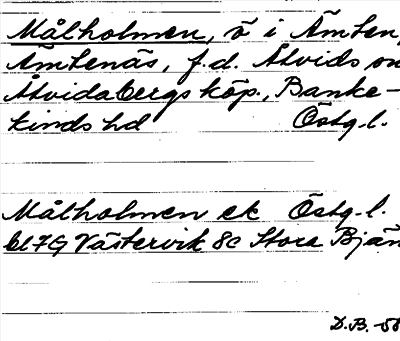 Målholmen, ö i Ämten,
Ämtenäs, f.d. Åtvids
Åtvidabergs köp., Banke-
kinds hd Östg.l.
Målholmen ek Östg.l.
bl 7G Västervik 8c Stora Bjän
D.B. -58